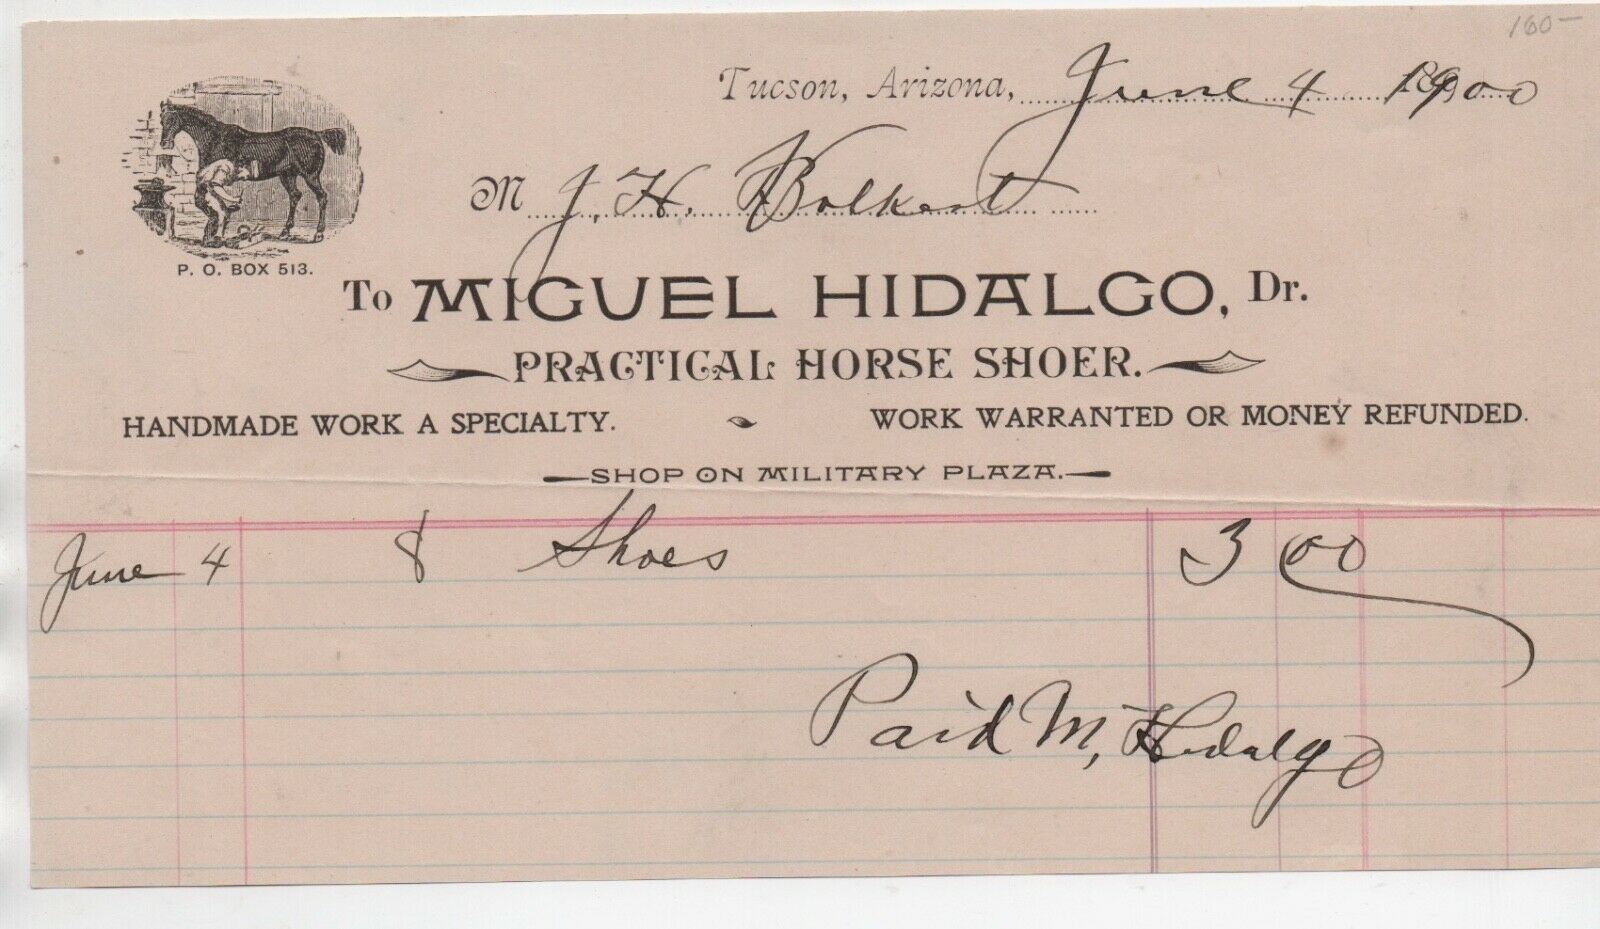 160—
Tucson, Arizona, June 4 1900
M J. H. Bolkert
P. O. BOX 513.
To MIGUEL HIDALGO, Dr.
PRACTICAL HORSE SHOER.
HANDMADE WORK A SPECIALTY. WORK WARRANTED OR MONEY REFUNDED.
SHOP ON MILITARY PLAZA.
June 4 8 Shoes 3 00
Paid M, Hidalgo